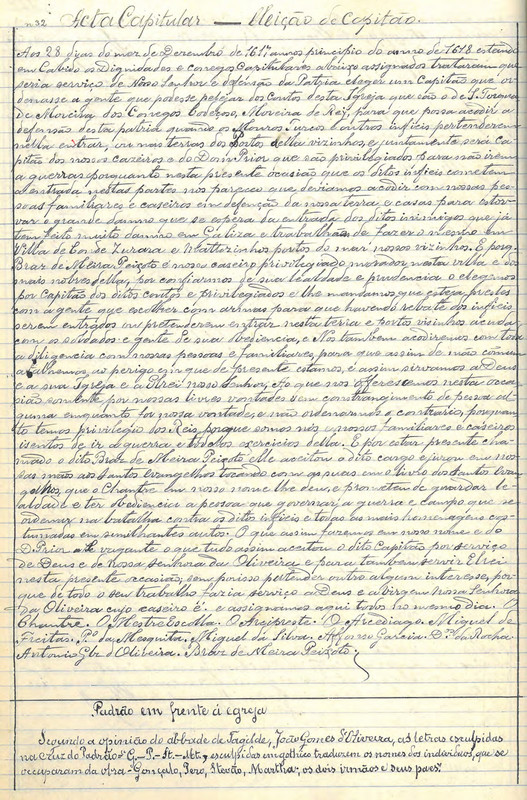 nº 32 Acta Capitular — Eleição de Capitão.
Aos 28 dyas do mez de Dezembro de 1617 annos principio do anno de 1618 estando
em Cabido os Dignidades e conegos Capitulares abaixo assignados trataram que
seria serviço de Nosso Senhor e defensão da Patria eleger um Capitão que or-
denasse a gente que podesse pelejar dos Coutos desta Igreja que são o de S. Torquato
de Moreira dos Conegos Codeçoso, Moreira de Rey, para que possa acodir a
defensão desta patria quando os Mouros, turcos e outros infieis pertenderem
nella entrar, ou nas terras dos Portos della vizinhos, e juntamente será Ca-
pitão dos nossos cazeiros e do Dom Prior que são privilegiados para não irem
a guerras porquanto nesta presente occasião que os ditos infieis cometem
a entrada nestas partes nos pareceo que deviamos acodir com nossas pes-
soas familiares e caseiros em defenção da nossa terra e casas para estor-
var o grande damno que se espera da entrada dos ditos inimigos que já
tem feito muito damno em Galiza e trabalhão de fazer o mesmo em
Villa de Conde Zurara e Mattozinhos portos do mar nossos vizinhos. E porq
Braz de Meira Peixoto é nosso caseiro privilegiado morador nesta villa e dos
mais nobres della, por confiarmos de sua lealdade e prudencia o elegemos
por Capitão dos ditos coutos e privilegiados e lhe mandamos que esteja prestes
com a gente que escolher com armas para que havendo rebate dos infieis
serem entrados ou pretenderem entrar nesta terra e portos visinhos acuda
com os soldados e gente de sua obediencia, e Nos tambem acodiremos com toda
a diligencia com nossas pessoas e familiares, para que assim de mão comum
atalhemos ao perigo em que de presente estamos, e assim sirvamos a Deus
e a sua Igreja e a Elrei nosso Senhor, Ao que nos offerecemos nesta occa-
sião somente por nossas livres vontades sem constrangimento de pessoa al-
guma emquanto for nossa vontade, e não ordenarmos o contrario, porquan-
to temos privilegio dos Reis porque somos nós e nossos familiares e caseiros
isentos de ir a guerra e todolos exercicios della. E por estar presente cha-
mado o dito Braz de Meira Peixoto elle aceitou o dito cargo e jurou em nos-
sas mãos aos Santos Evangelhos tocando com as suas em o livro dos Santos Evan-
gelhos, que o Chantre em nosso nome lhe deu, e prometeu de guardar le-
aldade e ter obediencia a pessoa que governar, a guerra e campo que se
ordenar na batalha contra os ditos infieis e todas as mais homenagens cos-
tumadas em similhantes autos. O que assim fazemos em nosso nome e do
D. Prior a Sé vagante o que tudo assim aceitou o dito Capitão por serviço
de Deus e de Nossa Senhora da Oliveira e para tambem servir Elrei
nesta presente occasião, sem por isso pretender outro algum interesse, por-
que de todo o seu trabalho fazia serviço a Deus e a Virgem Nossa Senhora
da Oliveira cujo caseiro é. e assignamos aqui todos no mesmo dia. O
Chantre. O Mestre Escolla. O Arcipreste. O Arcediago. Miguel de
Freitas. P.º da Mesquita. Miguel da Silva. Affonso Garcia. D.ºs da Rocha.
Antonio Glz d'Oliveira. Braz de Meira Peixoto.
Padrão em frente á egreja
Segundo a opinião do abbade de Tagilde, João Gomes d'Oliveira, as letras esculpidas
na cruz do Padrão — G.-P.-St.-Mt. esculpidas em gothico traduzem os nomes dos individuos, que se
occuparam da obra — Gonçalo, Pero, Stevão, Martha, os dois irmãos e seus paes.